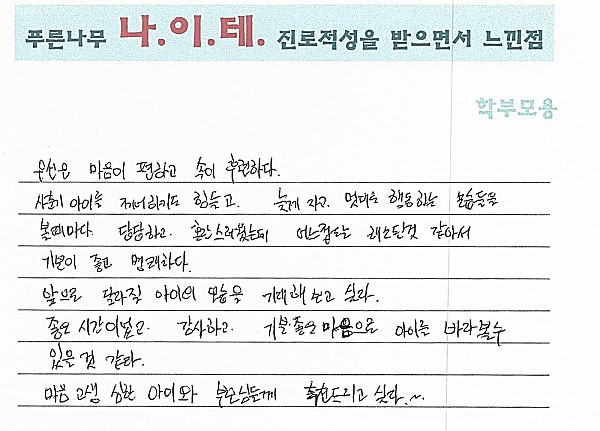 푸른나무 나.이.테. 진로적성을 받으면서 느낀점
학부모용
우선은 마음이 편하고 속이 후련하다.
사춘기 아이를 제어하기도 힘들고. 늦게 자고. 멋대로 행동하는 모습들을
볼때마다. 답답하고. 혼란스러웠는데 어느정도는 해소된것 같아서
기분이 좋고 명쾌하다.
앞으로 달라질 아이의 모습을 기대해 보고 싶다.
좋은 시간이었고. 감사하고. 기분좋은 마음으로 아이를 바라볼수
있을 것 같다.
마음 고생 심한 아이와 부모님들께 추천드리고 싶다.~